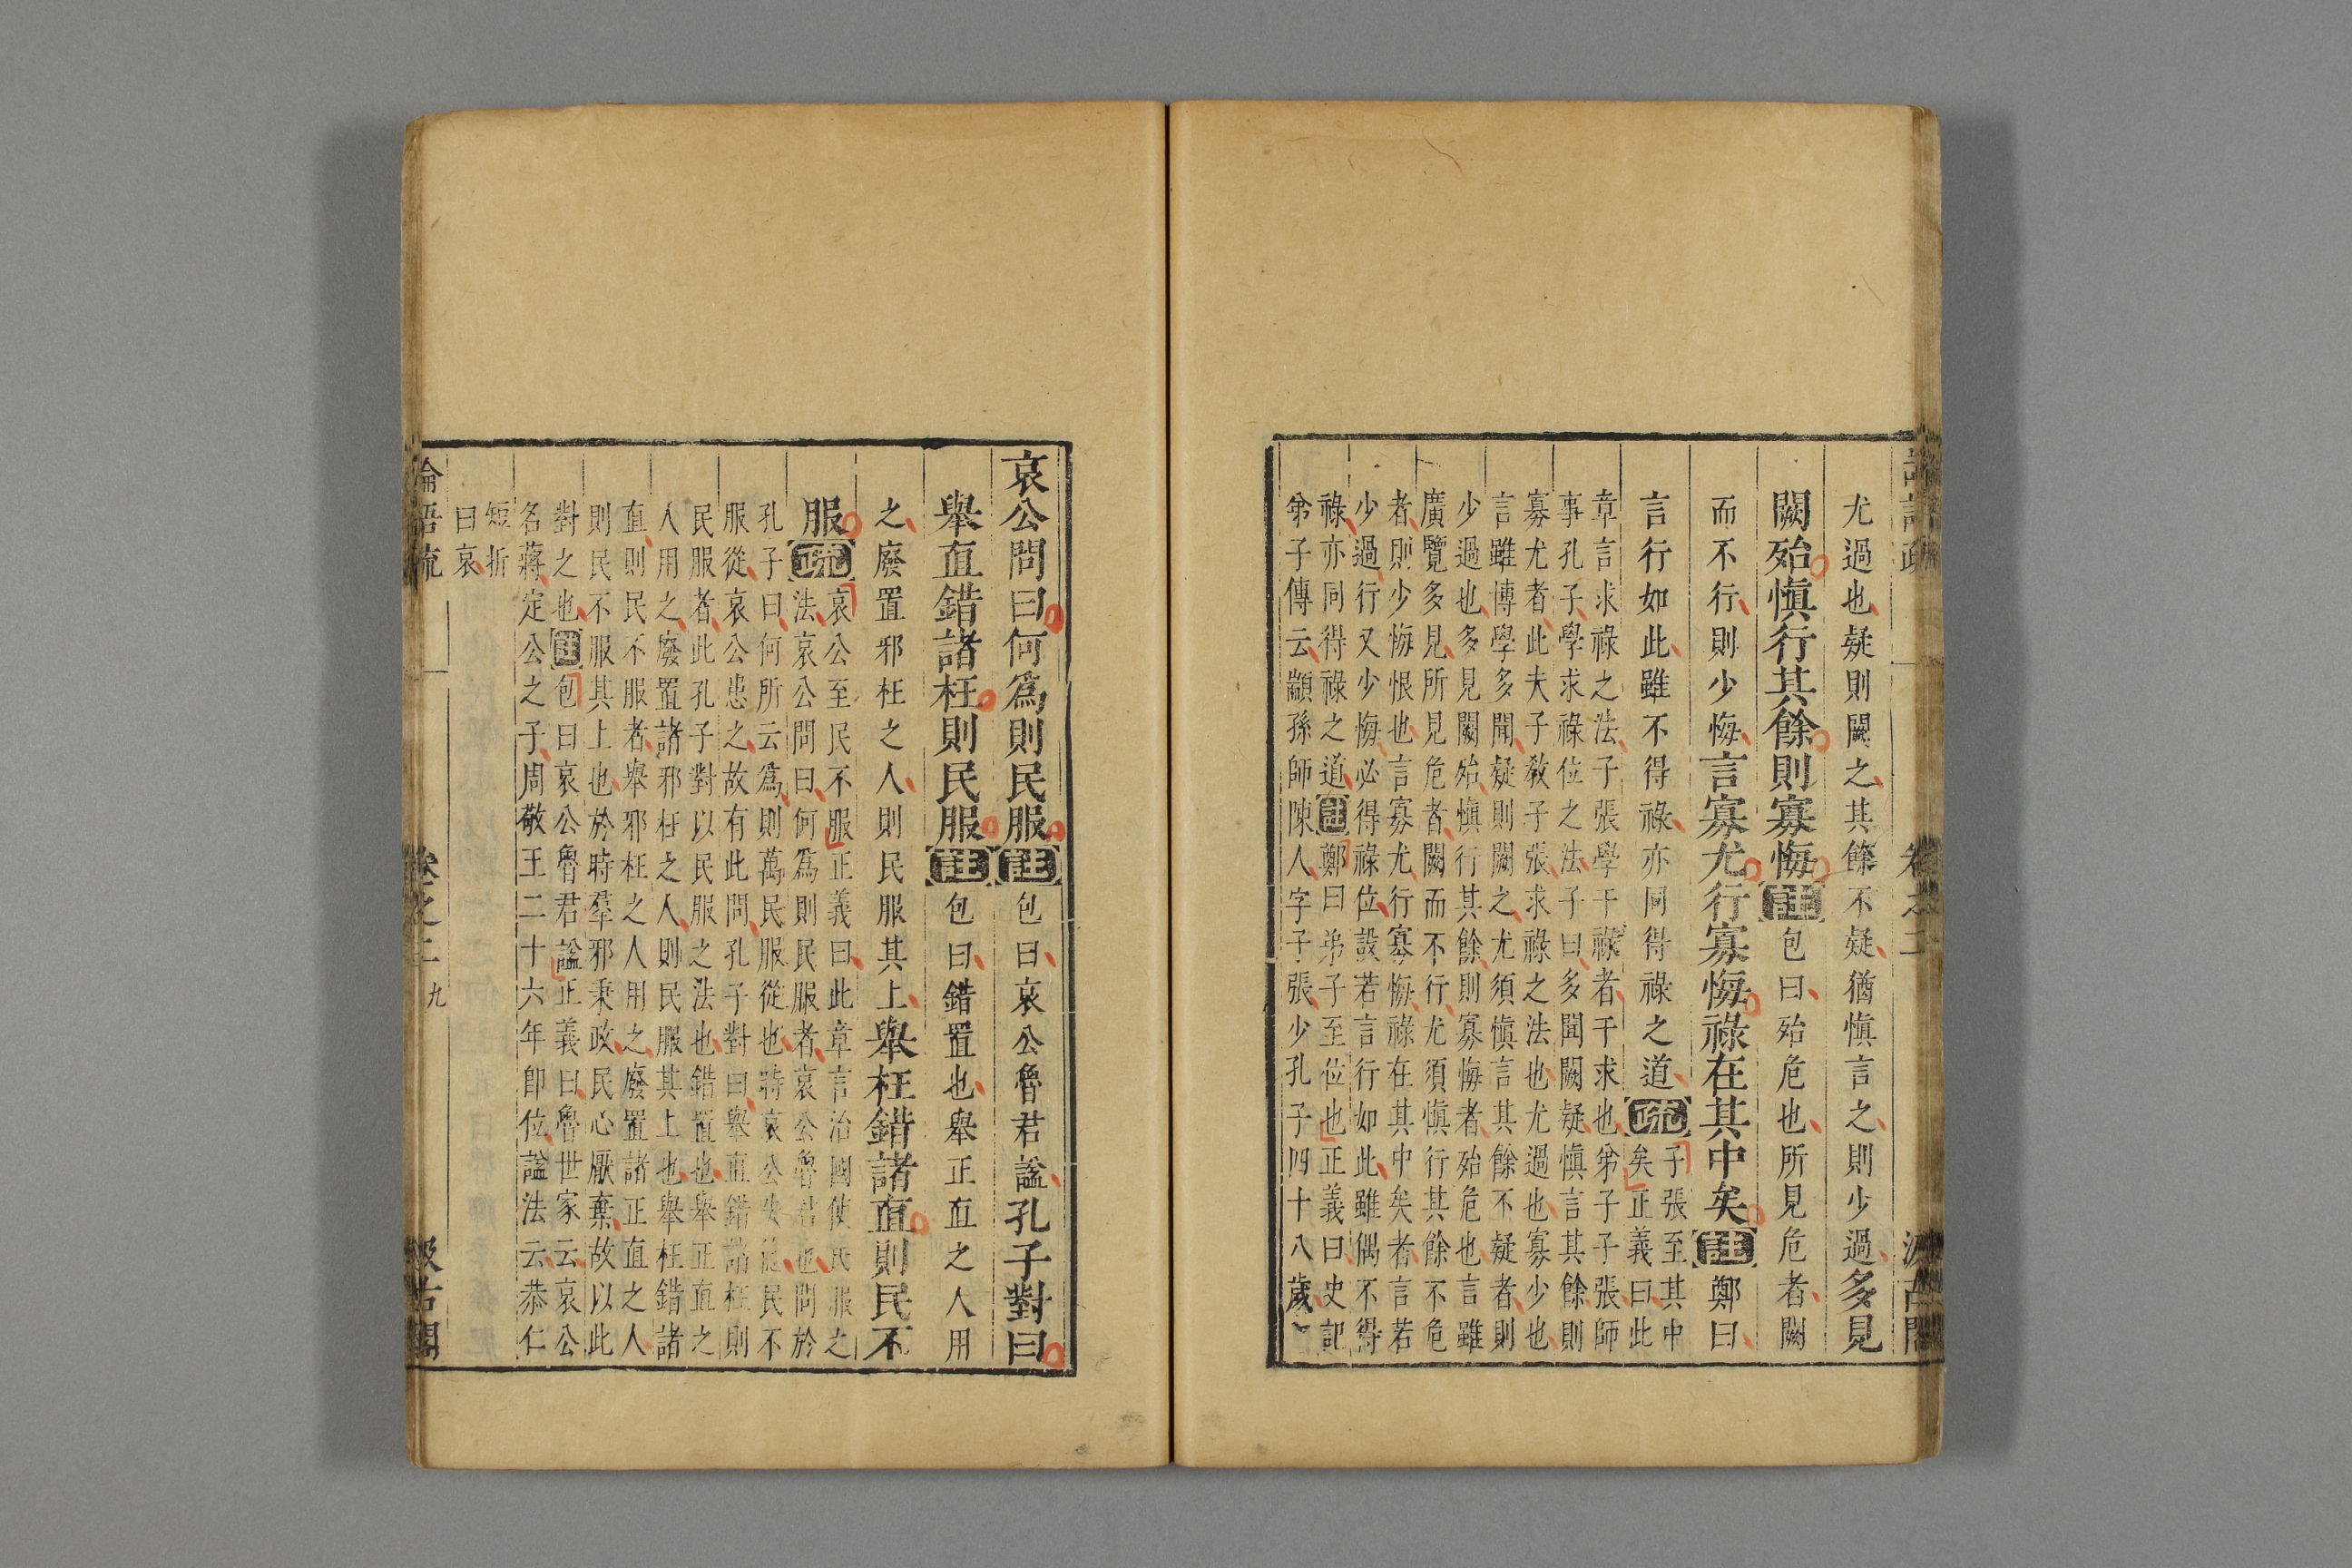 尤過也疑則闕之其餘不疑猶慎言之則少過多見
闕殆慎行其餘則寡悔註包曰殆危也所見危者闕
而不行則少悔言寡尤行寡悔祿在其中矣註鄭曰
言行如此雖不得祿亦同得祿之道疏子張至其中
矣正義曰此
章言求祿之法子張學干祿者干求也弟子子張師
事孔子學求祿位之法子曰多聞闕疑慎言其餘則
寡尤者此夫子教子張求祿之法也尤過也寡少也
言雖博學多聞疑則闕之尤須慎言其餘不疑者則
少過也多見闕殆慎行其餘則寡悔者殆危也言雖
廣覽多見所見危者闕而不行尤須慎行其餘不危
者則少悔恨也言寡尤行寡悔祿在其中矣者言若
少過行又少悔必得祿位設若言行如此雖偶不得
祿亦同得祿之道註鄭曰弟子至位也正義曰史記
弟子傳云顓孫師陳人字子張少孔子四十八歲
哀公問曰何爲則民服註包曰哀公魯君謚孔子對曰
舉直錯諸枉則民服註包曰錯置也舉正直之人用
之廢置邪枉之人則民服其上舉枉錯諸直則民不
服疏哀公至民不服正義曰此章言治國使民服之
法哀公問曰何爲則民服者哀公魯君也問於
孔子曰何所云爲則萬民服從也時哀公失德民不
服從哀公患之故有此問孔子對曰舉直錯諸枉則
民服者此孔子對以民服之法也錯置也舉正直之
人用之廢置諸邪枉之人則民服其上也舉枉錯諸
直則民不服者舉邪枉之人用之廢置諸正直之人
則民不服其上也於時羣邪秉政民心厭棄故以此
對之也註包曰哀公魯君謚正義曰魯世家云哀公
名蔣定公之子周敬王二十六年即位謚法云恭仁
短折
曰哀
論語疏 卷之二 九 汲古閣